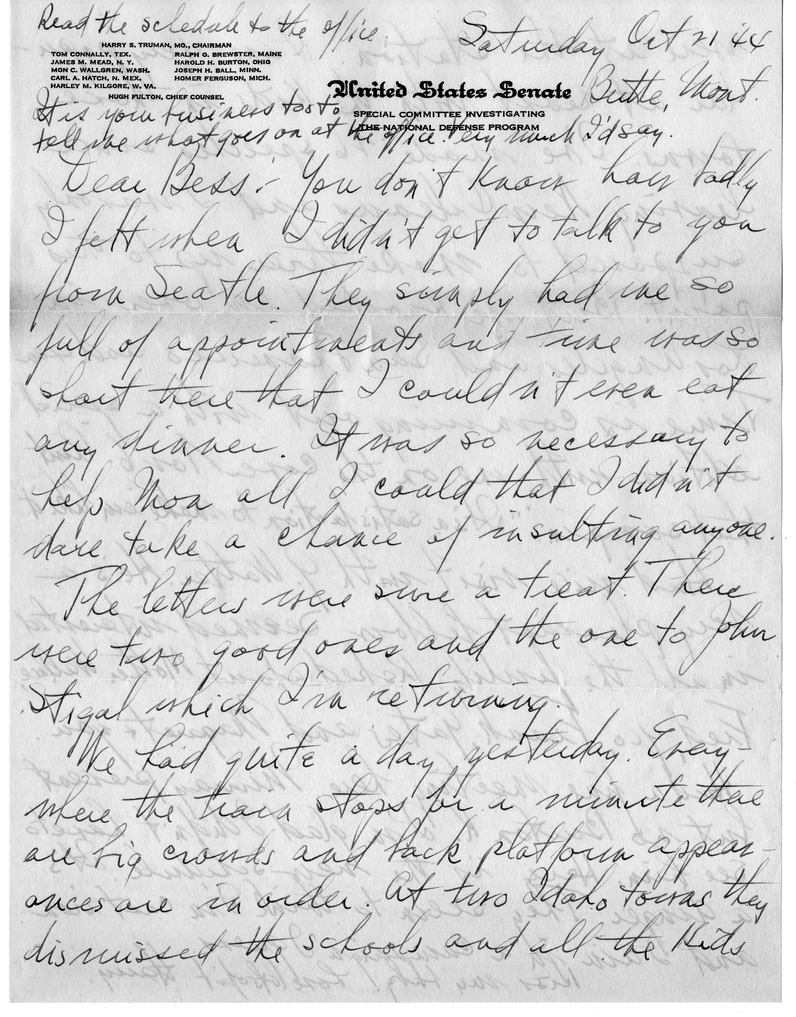 Read the schedule to the office.
Saturday Oct 21 '44
HARRY S. TRUMAN, MO., CHAIRMAN
TOM CONNALLY, TEX. RALPH O. BREWSTER, MAINE
JAMES M. MEAD, N. Y. HAROLD H. BURTON, OHIO
MON C. WALLGREN, WASH. JOSEPH H. BALL, MINN.
CARL A. HATCH, N. MEX. HOMER FERGUSON, MICH.
HARLEY M. KILGORE, W. VA.
HUGH FULTON, CHIEF COUNSEL
United States Senate
SPECIAL COMMITTEE INVESTIGATING
THE NATIONAL DEFENSE PROGRAM
Butte, Mont.
It is your business too to
tell me what goes on at the office. Very much I'd say.
Dear Bess:- You don't know how badly
I felt when I didn't get to talk to you
from Seatle. They simply had me so
full of appointments and time was so
short there that I couldn't even eat
any dinner. It was so necessary to
help Mon all I could that I didn't
dare take a chance of insulting anyone.
The letters were sure a treat. There
were two good ones and the one to John
Stigal which I'm returning.
We had quite a day yesterday. Every-
where the train stops for a minute there
are big crowds and back platform appear-
ances are in order. At two Idaho towns they
dismissed the schools and all the kids